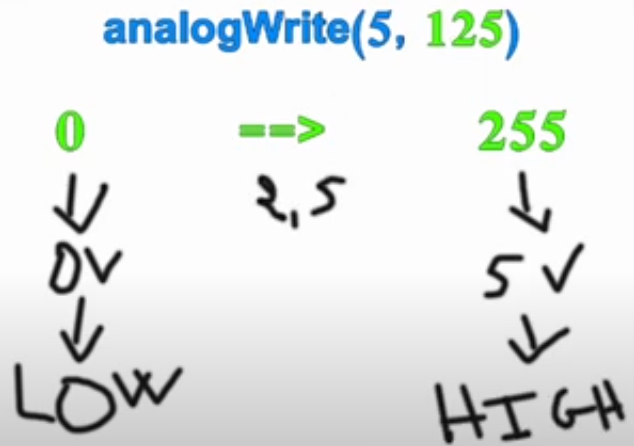 analogWrite(5, 125)
0 ==> 255
2,5
0V 5V
LOW HIGH